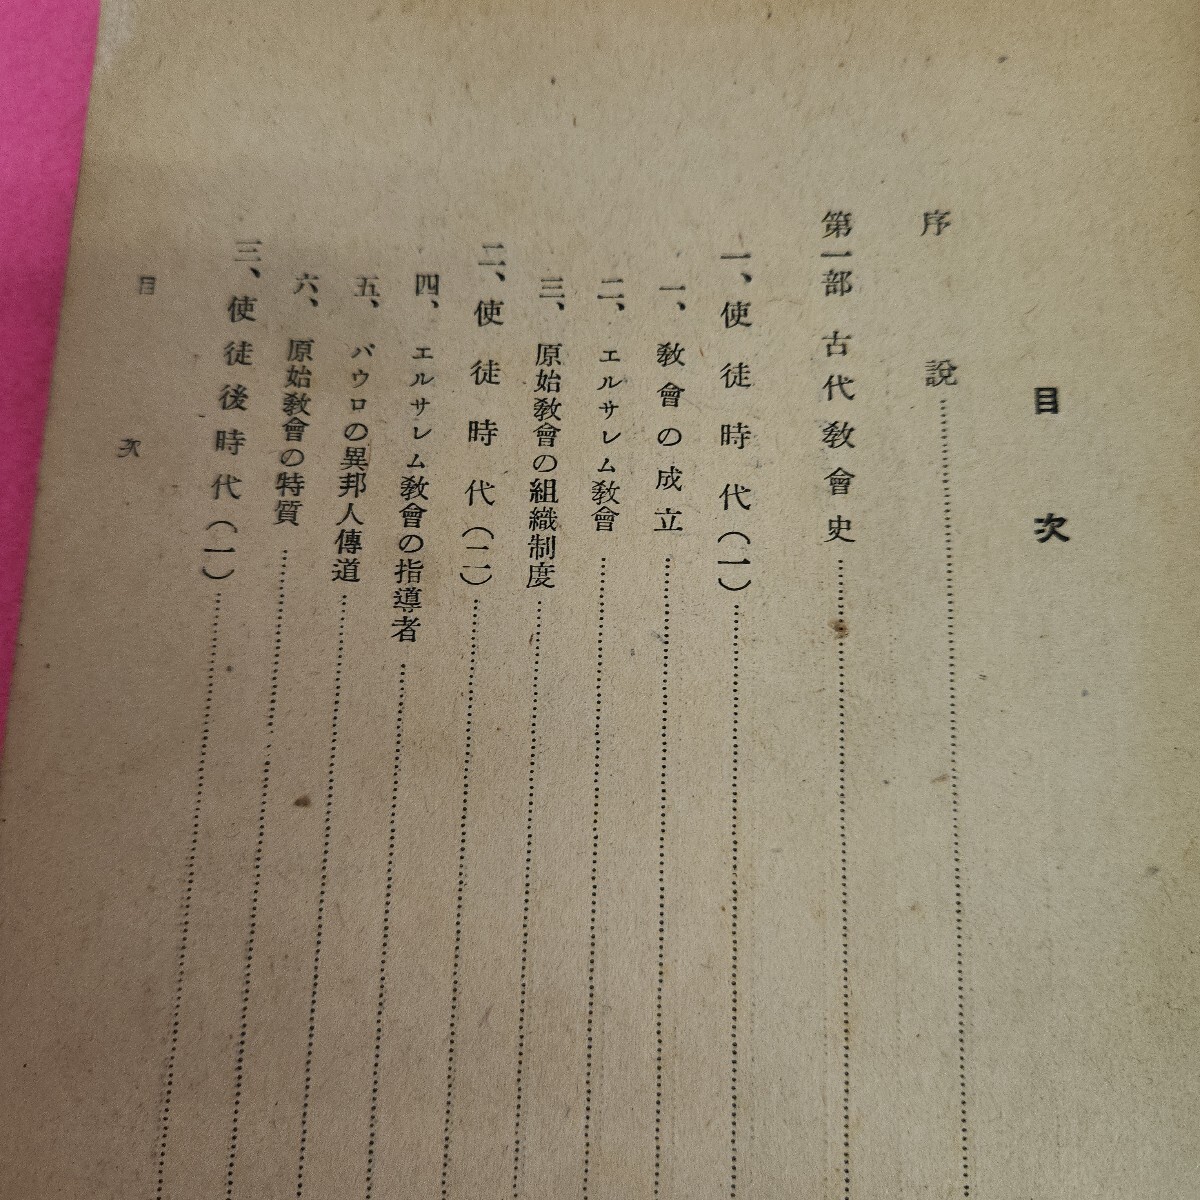 目次
序説
第一部 古代敎會史
一、使徒時代(一)
一、敎會の成立
二、エルサレム敎會
三、原始敎會の組織制度
二、使徒時代(二)
四、エルサレム敎會の指導者
五、パウロの異邦人傳道
六、原始敎會の特質
三、使徒後時代(一)
目次